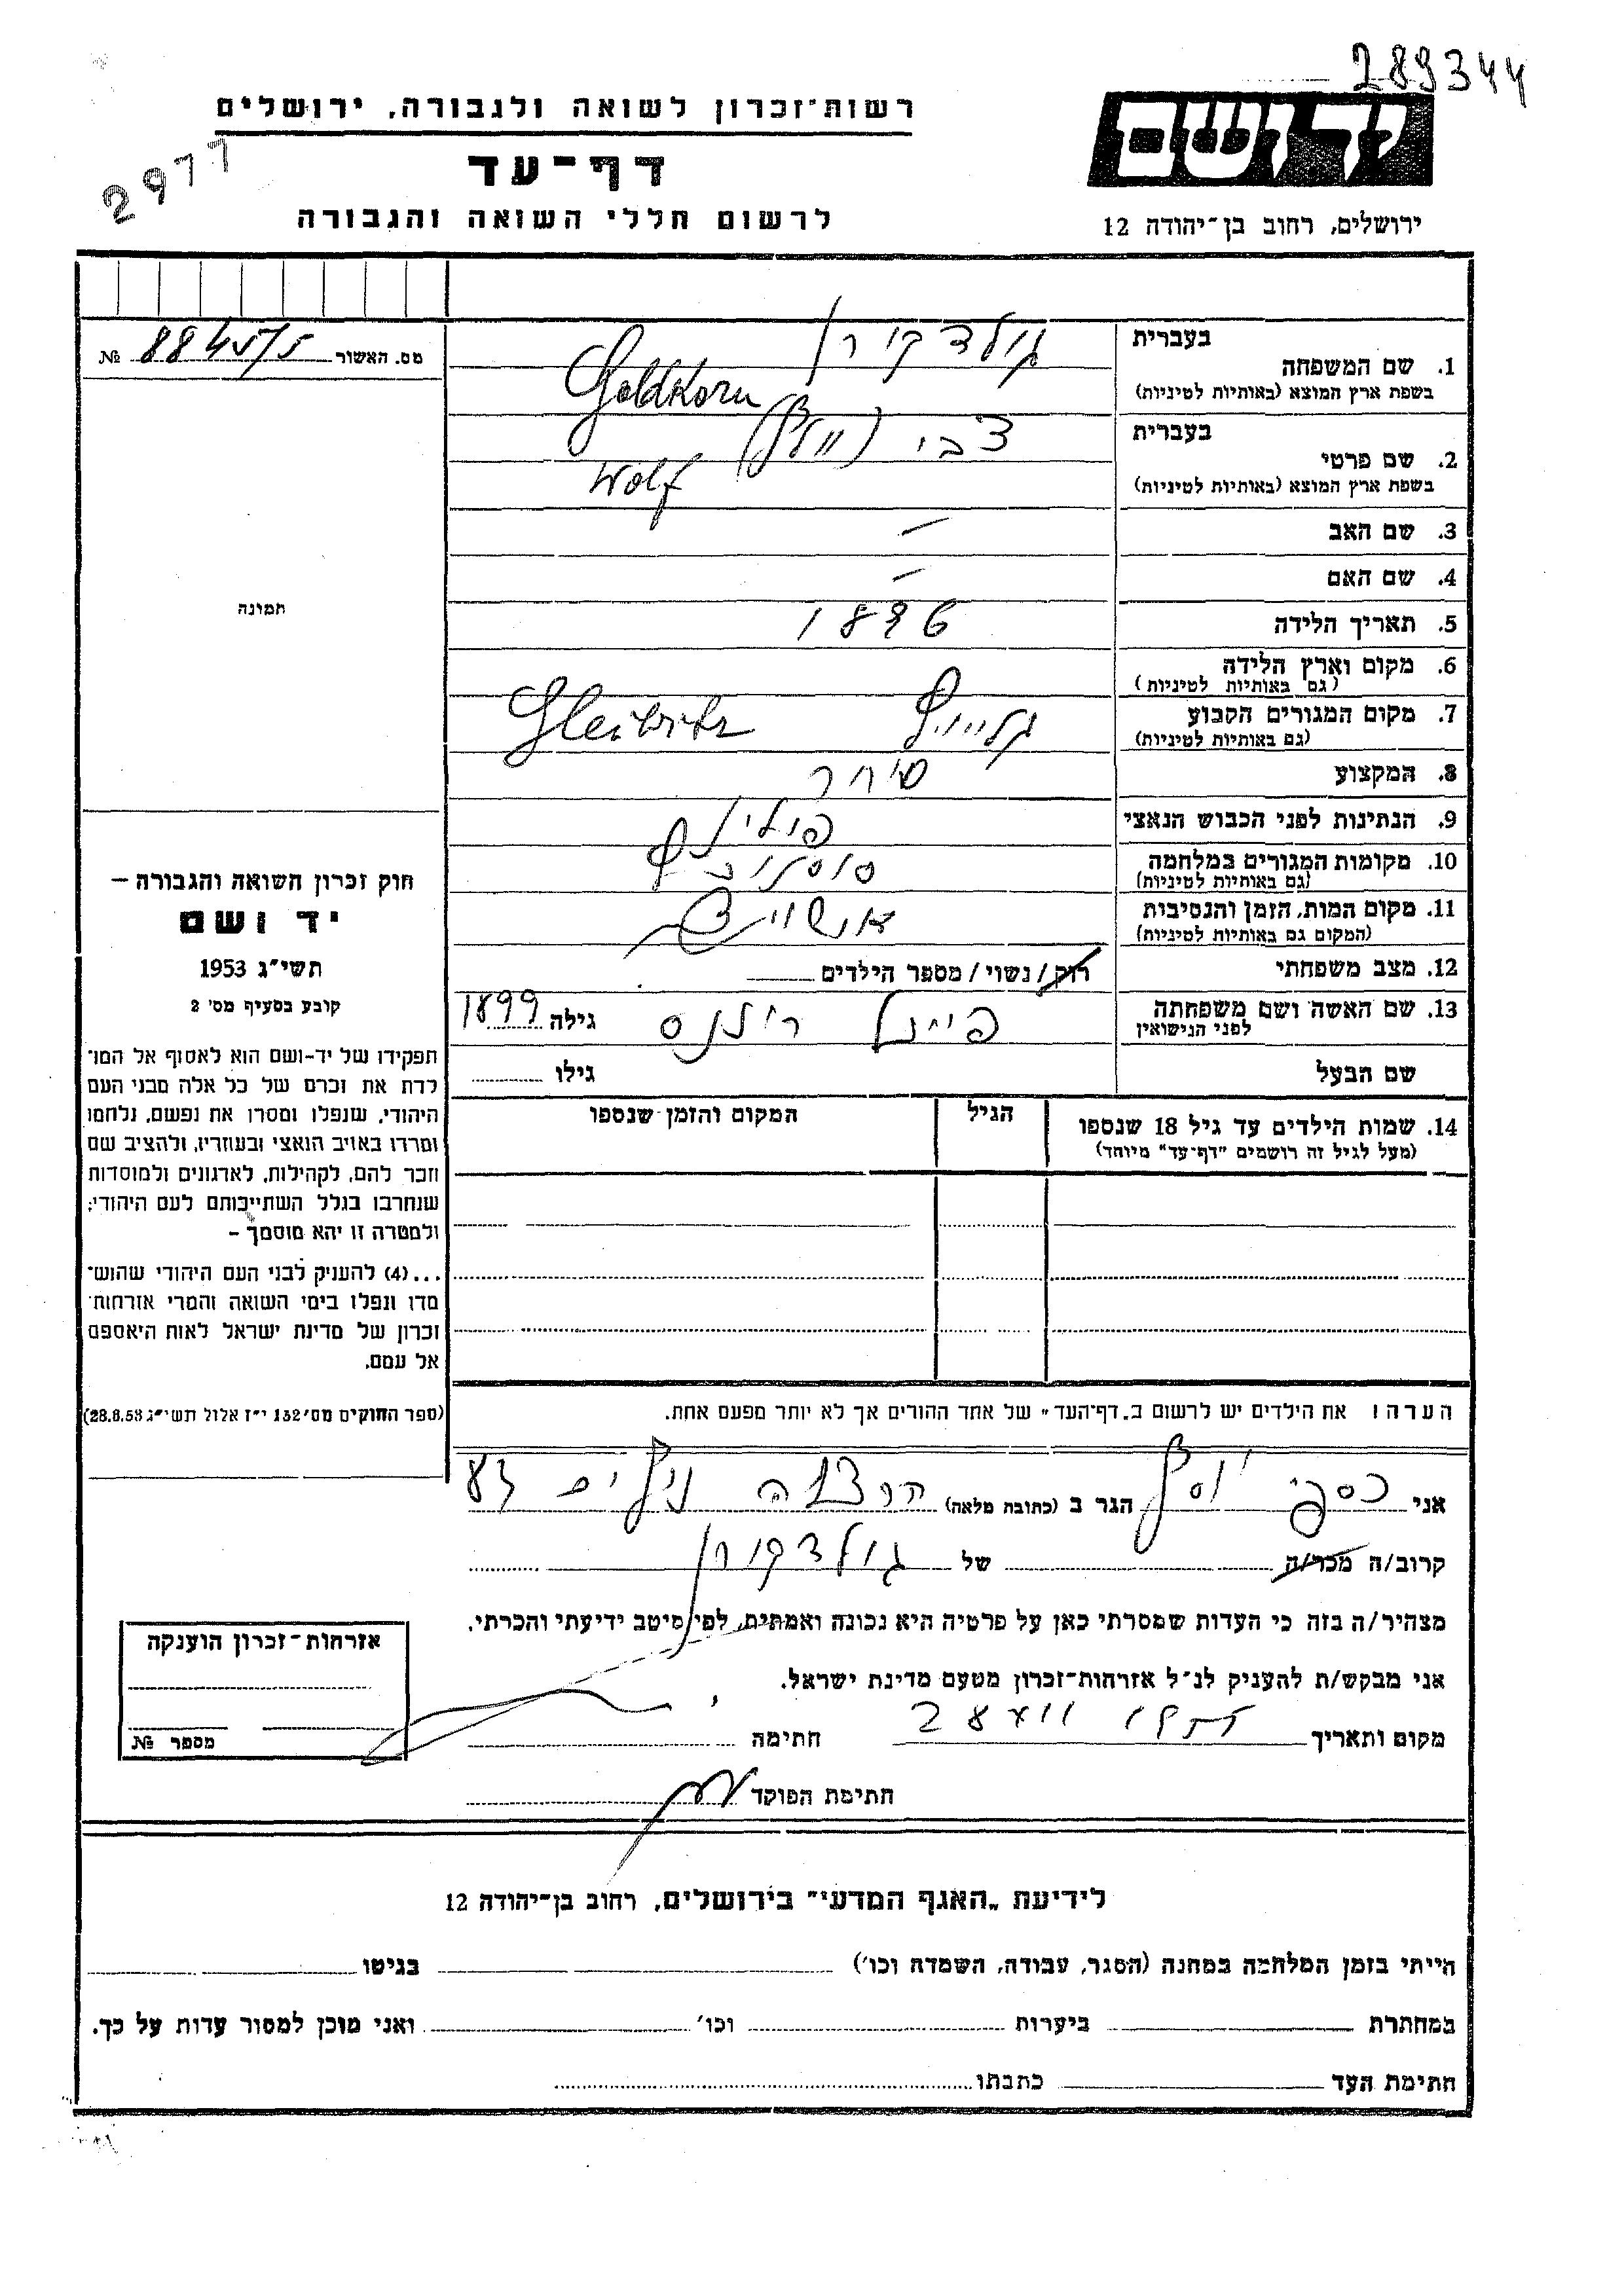 289344
יד ושם
ירושלים, רחוב בן־יהודה 12
רשות־זכרון לשואה ולגבורה, ירושלים
דף־עד
לרשום חללי השואה והגבורה
2977
בעברית
1. שם המשפחה
בשפת ארץ המוצא (באותיות לטיניות)
גולדקורן
Goldkorn
מס. האשור 88457/5 №
בעברית
2. שם פרטי
בשפת ארץ המוצא (באותיות לטיניות)
צבי (וולף)
Wolf
3. שם האב –
4. שם האם –
5. תאריך הלידה 1896
6. מקום וארץ הלידה
(גם באותיות לטיניות)
7. מקום המגורים הקבוע
(גם באותיות לטיניות)
גלייוויץ Gleiwitz
8. המקצוע סוחר
9. הנתינות לפני הכבוש הנאצי פולין
10. מקומות המגורים במלחמה
(גם באותיות לטיניות)
סוסנוביץ
11. מקום המות, הזמן והנסיבות
(המקום גם באותיות לטיניות)
אושוויץ
12. מצב משפחתי רוק/נשוי/מספר הילדים
13. שם האשה ושם משפחתה
לפני הנישואין
פייגל גילה 1899
שם הבעל גילו
14. שמות הילדים עד גיל 18 שנספו
(מעל לגיל זה רושמים "דף־עד" מיוחד)
הגיל
המקום והזמן שנספו
תמונה
חוק זכרון השואה והגבורה –
יד ושם
תשי"ג 1953
קובע בסעיף מס' 2
תפקידו של יד-ושם הוא לאסוף אל המו־
לדת את זכרם של כל אלה מבני העם
היהודי, שנפלו ומסרו את נפשם, נלחמו
ומרדו באויב הנאצי ובעוזריו, ולהציב שם
וזכר להם, לקהילות, לארגונים ולמוסדות
שנחרבו בגלל השתייכותם לעם היהודי;
ולמטרה זו יהא מוסמך –
...(4) להעניק לבני העם היהודי שהוש־
מדו ונפלו בימי השואה והמרי אזרחות־
זכרון של מדינת ישראל לאות היאספם
אל עמם.
(ספר החוקים מס' 132 י"ז אלול תשי"ג 28.8.53)
הערה: את הילדים יש לרשום ב„דף־העד" של אחד ההורים אך לא יותר מפעם אחת.
אני כספי יוסף הגר ב (כתובת מלאה)
קרוב/ה מכר/ה של גולדקורן
מצהיר/ה בזה כי העדות שמסרתי כאן על פרטיה היא נכונה ואמתית, לפי מיטב ידיעתי והכרתי.
אני מבקש/ת להעניק לנ"ל אזרחות־זכרון מטעם מדינת ישראל.
מקום ותאריך חתימה
חתימת הפוקד
אזרחות־זכרון הוענקה
מספר №
לידיעת „האגף המדעי" בירושלים, רחוב בן־יהודה 12
הייתי בזמן המלחמה במחנה (הסגר, עבודה, השמדה וכו') בגיטו
במחתרת ביערות וכו' ואני מוכן למסור עדות על כך.
חתימת העד כתבתו